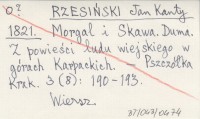 o?
RZESIŃSKI Jan Kanty
1821. Morgal i Skawa. Duma.
Z powieści ludu wiejskiego w
górach Karpackich. — Pszczółka
Krak. 3 (8): 190-193.
Wiersz
87/043/0474